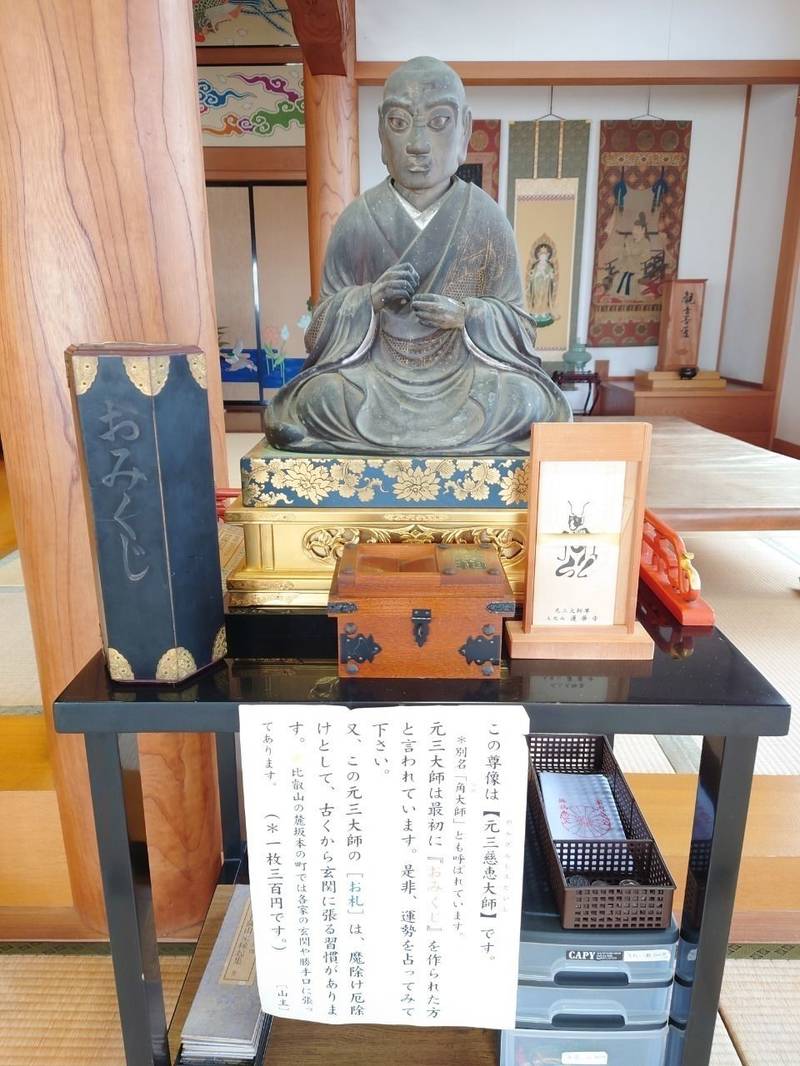 おみくじ
觀音菩薩
元三大師
この尊像は【元三慈恵大師】です。
＊別名「角大師」とも呼ばれています。
元三大師は最初に『おみくじ』を作られた方
と言われています。是非、運勢を占ってみて
下さい。
又、この元三大師の［お札］は、魔除け厄除
けとして、古くから玄関に張る習慣がありま
す。 比叡山の麓坂本の町では各家の玄関や勝手口に張っ
てあります。 （＊一枚三百円です。） ［山主］
CAPY